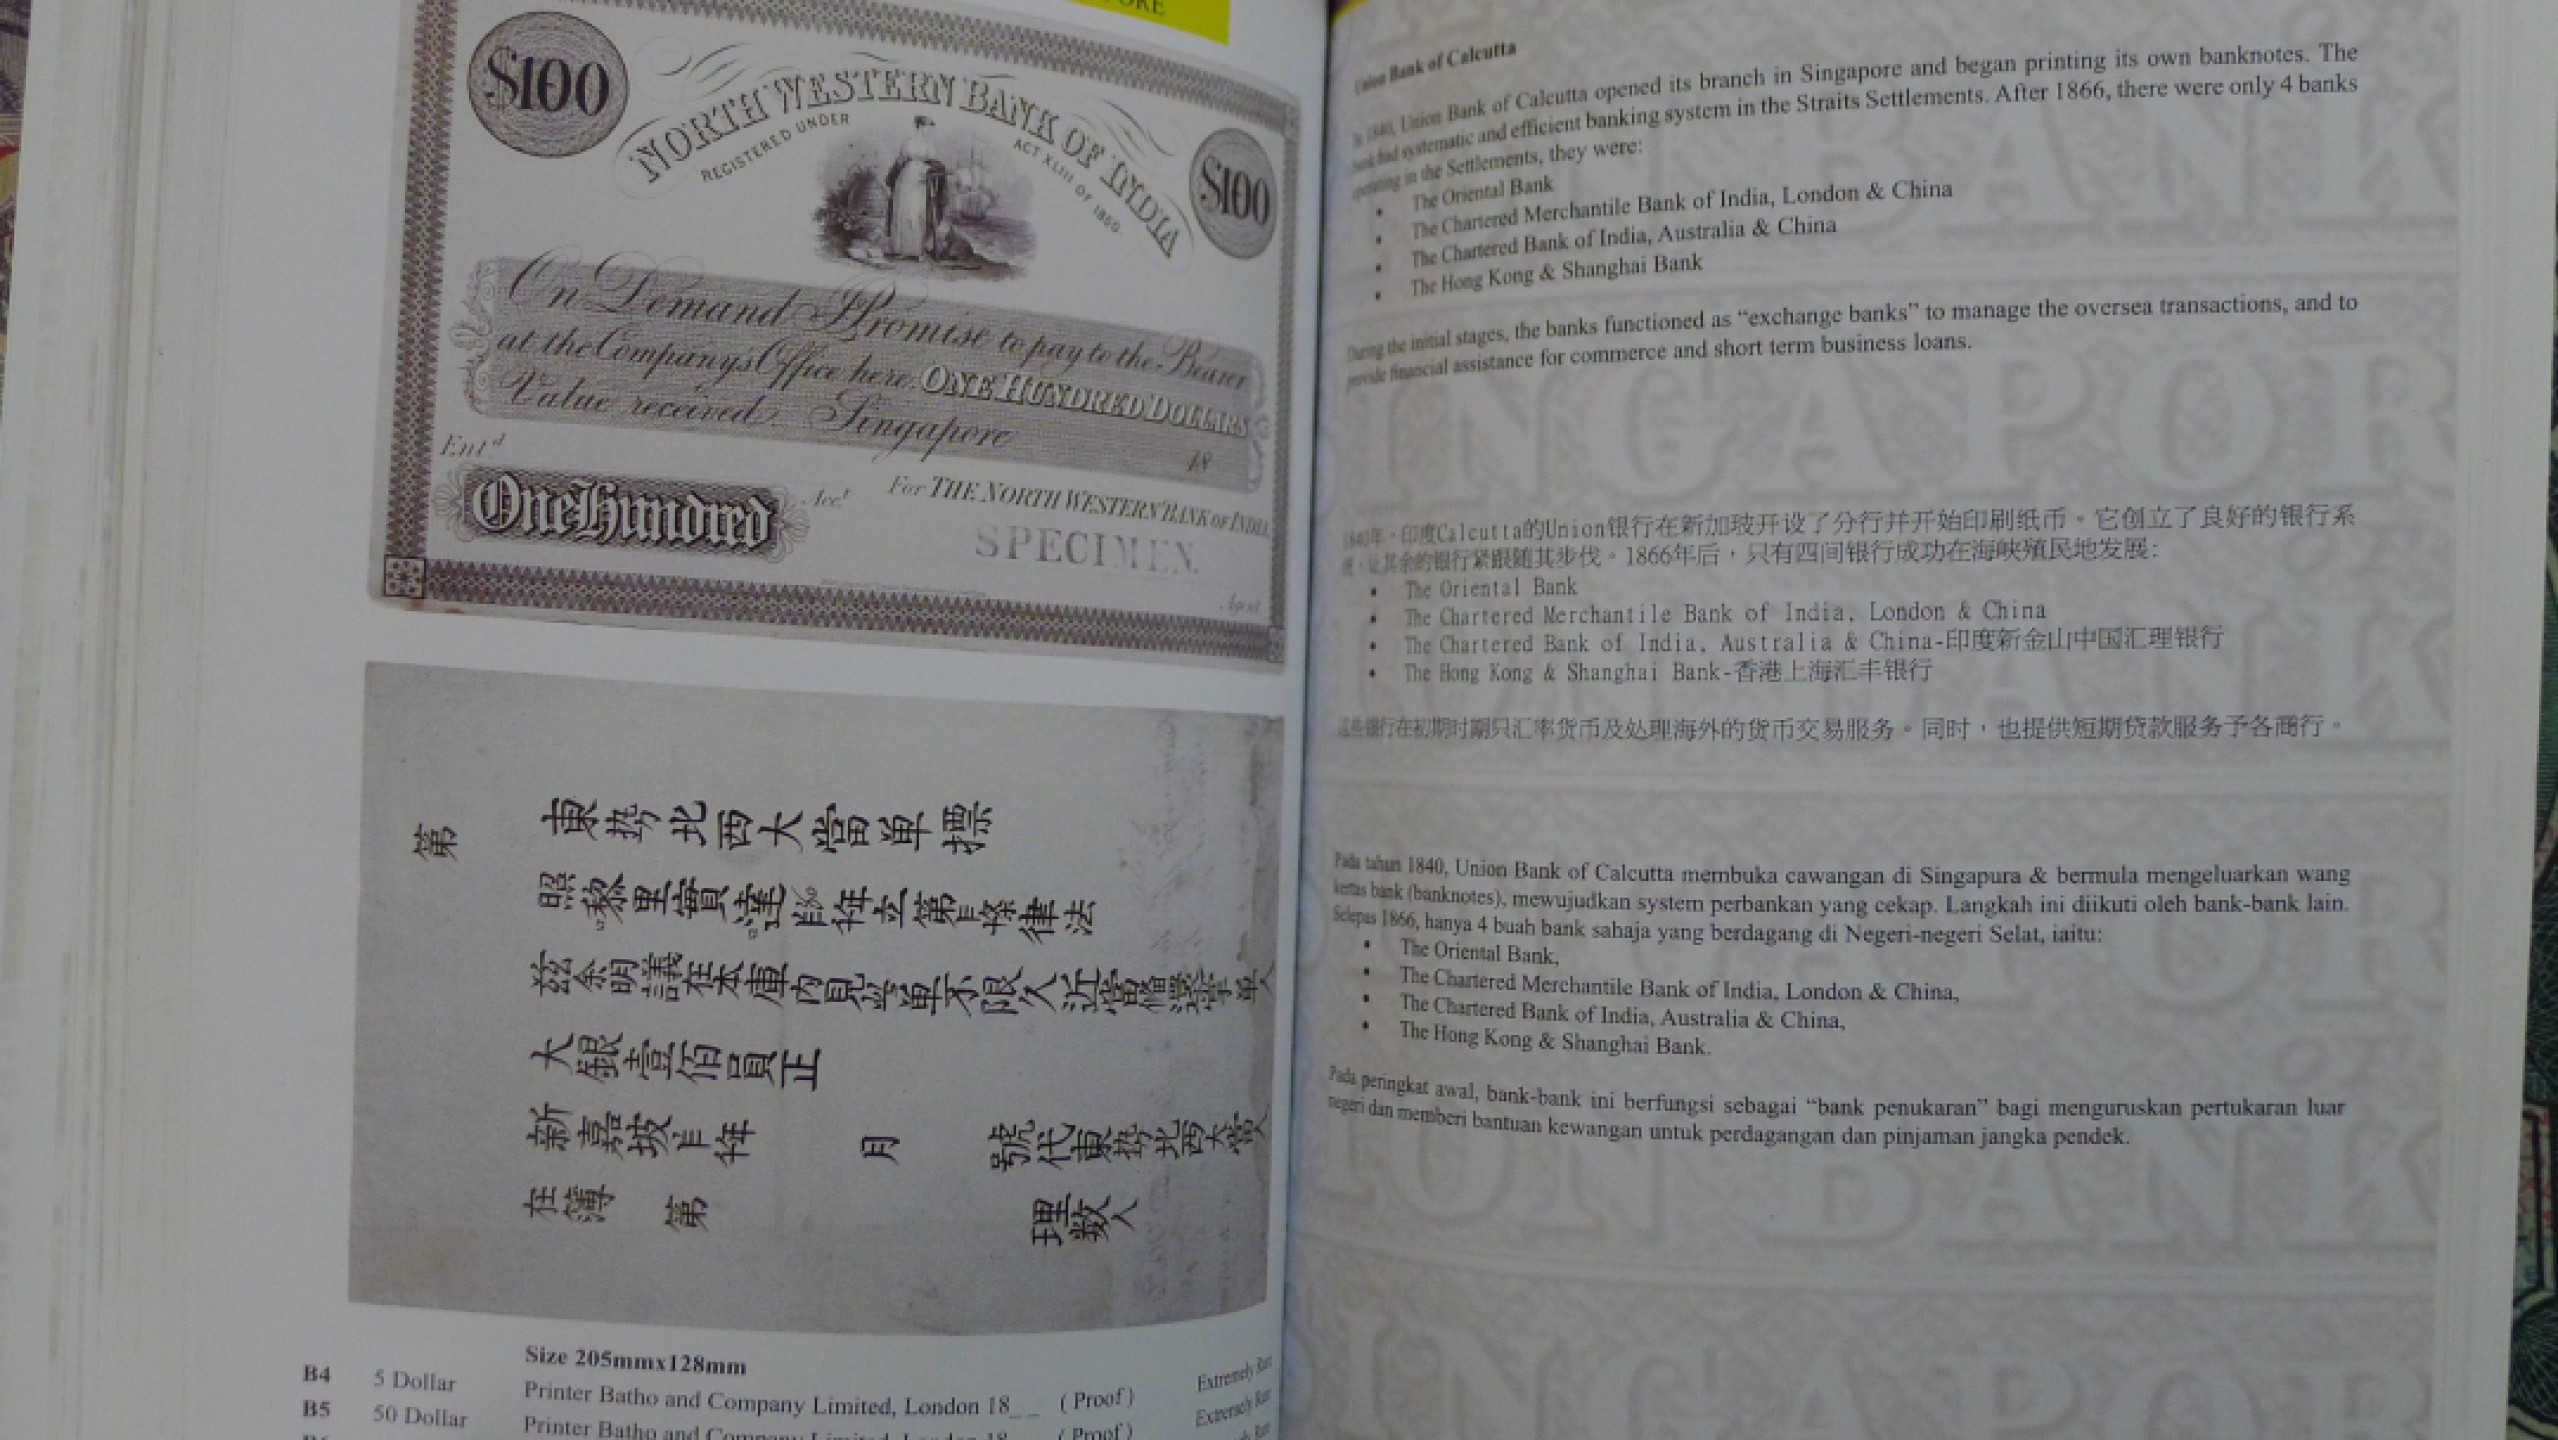 ORE
$100
NORTH WESTERN BANK OF INDIA
REGISTERED UNDER
ACT XLIII OF 1850.
$100
On Demand I Promise to pay to the Bearer
at the Company's Office here. ONE HUNDRED DOLLARS
Value received. Singapore
18
Ent.d
One Hundred
Acc.t
For THE NORTH WESTERN BANK OF INDIA,
SPECIMEN.
Agent
第
東勢北西大當單標
照 里實達 年立第 條律法
茲余明議在本庫內見 單不限久近當
大銀壹佰員正
新嘉坡 年 月 號代東勢北西大
在簿 第 理数人
Size 205mmx128mm
B4 5 Dollar Printer Batho and Company Limited, London 18_ _ ( Proof ) Extremely Rare
B5 50 Dollar Printer Batho and Company Limited, London 18 ( Proof ) Extremely Rare
Union Bank of Calcutta
In 1840, Union Bank of Calcutta opened its branch in Singapore and began printing its own banknotes. The
bank had systematic and efficient banking system in the Straits Settlements. After 1866, there were only 4 banks
operating in the Settlements, they were:
• The Oriental Bank
• The Chartered Merchantile Bank of India, London & China
• The Chartered Bank of India, Australia & China
• The Hong Kong & Shanghai Bank
During the initial stages, the banks functioned as “exchange banks” to manage the oversea transactions, and to
provide financial assistance for commerce and short term business loans.
1840年，印度Calcutta的Union银行在新加玻开设了分行并开始印刷纸币。它创立了良好的银行系
统，让其余的银行紧跟随其步伐。1866年后，只有四间银行成功在海峡殖民地发展:
• The Oriental Bank
• The Chartered Merchantile Bank of India, London & China
• The Chartered Bank of India, Australia & China-印度新金山中国汇理银行
• The Hong Kong & Shanghai Bank-香港上海汇丰银行
这些银行在初期时期只汇率货币及处理海外的货币交易服务。同时，也提供短期贷款服务予各商行。
Pada tahun 1840, Union Bank of Calcutta membuka cawangan di Singapura & bermula mengeluarkan wang
kertas bank (banknotes), mewujudkan system perbankan yang cekap. Langkah ini diikuti oleh bank-bank lain.
Selepas 1866, hanya 4 buah bank sahaja yang berdagang di Negeri-negeri Selat, iaitu:
• The Oriental Bank,
• The Chartered Merchantile Bank of India, London & China,
• The Chartered Bank of India, Australia & China,
• The Hong Kong & Shanghai Bank.
Pada peringkat awal, bank-bank ini berfungsi sebagai “bank penukaran” bagi menguruskan pertukaran luar
negeri dan memberi bantuan kewangan untuk perdagangan dan pinjaman jangka pendek.